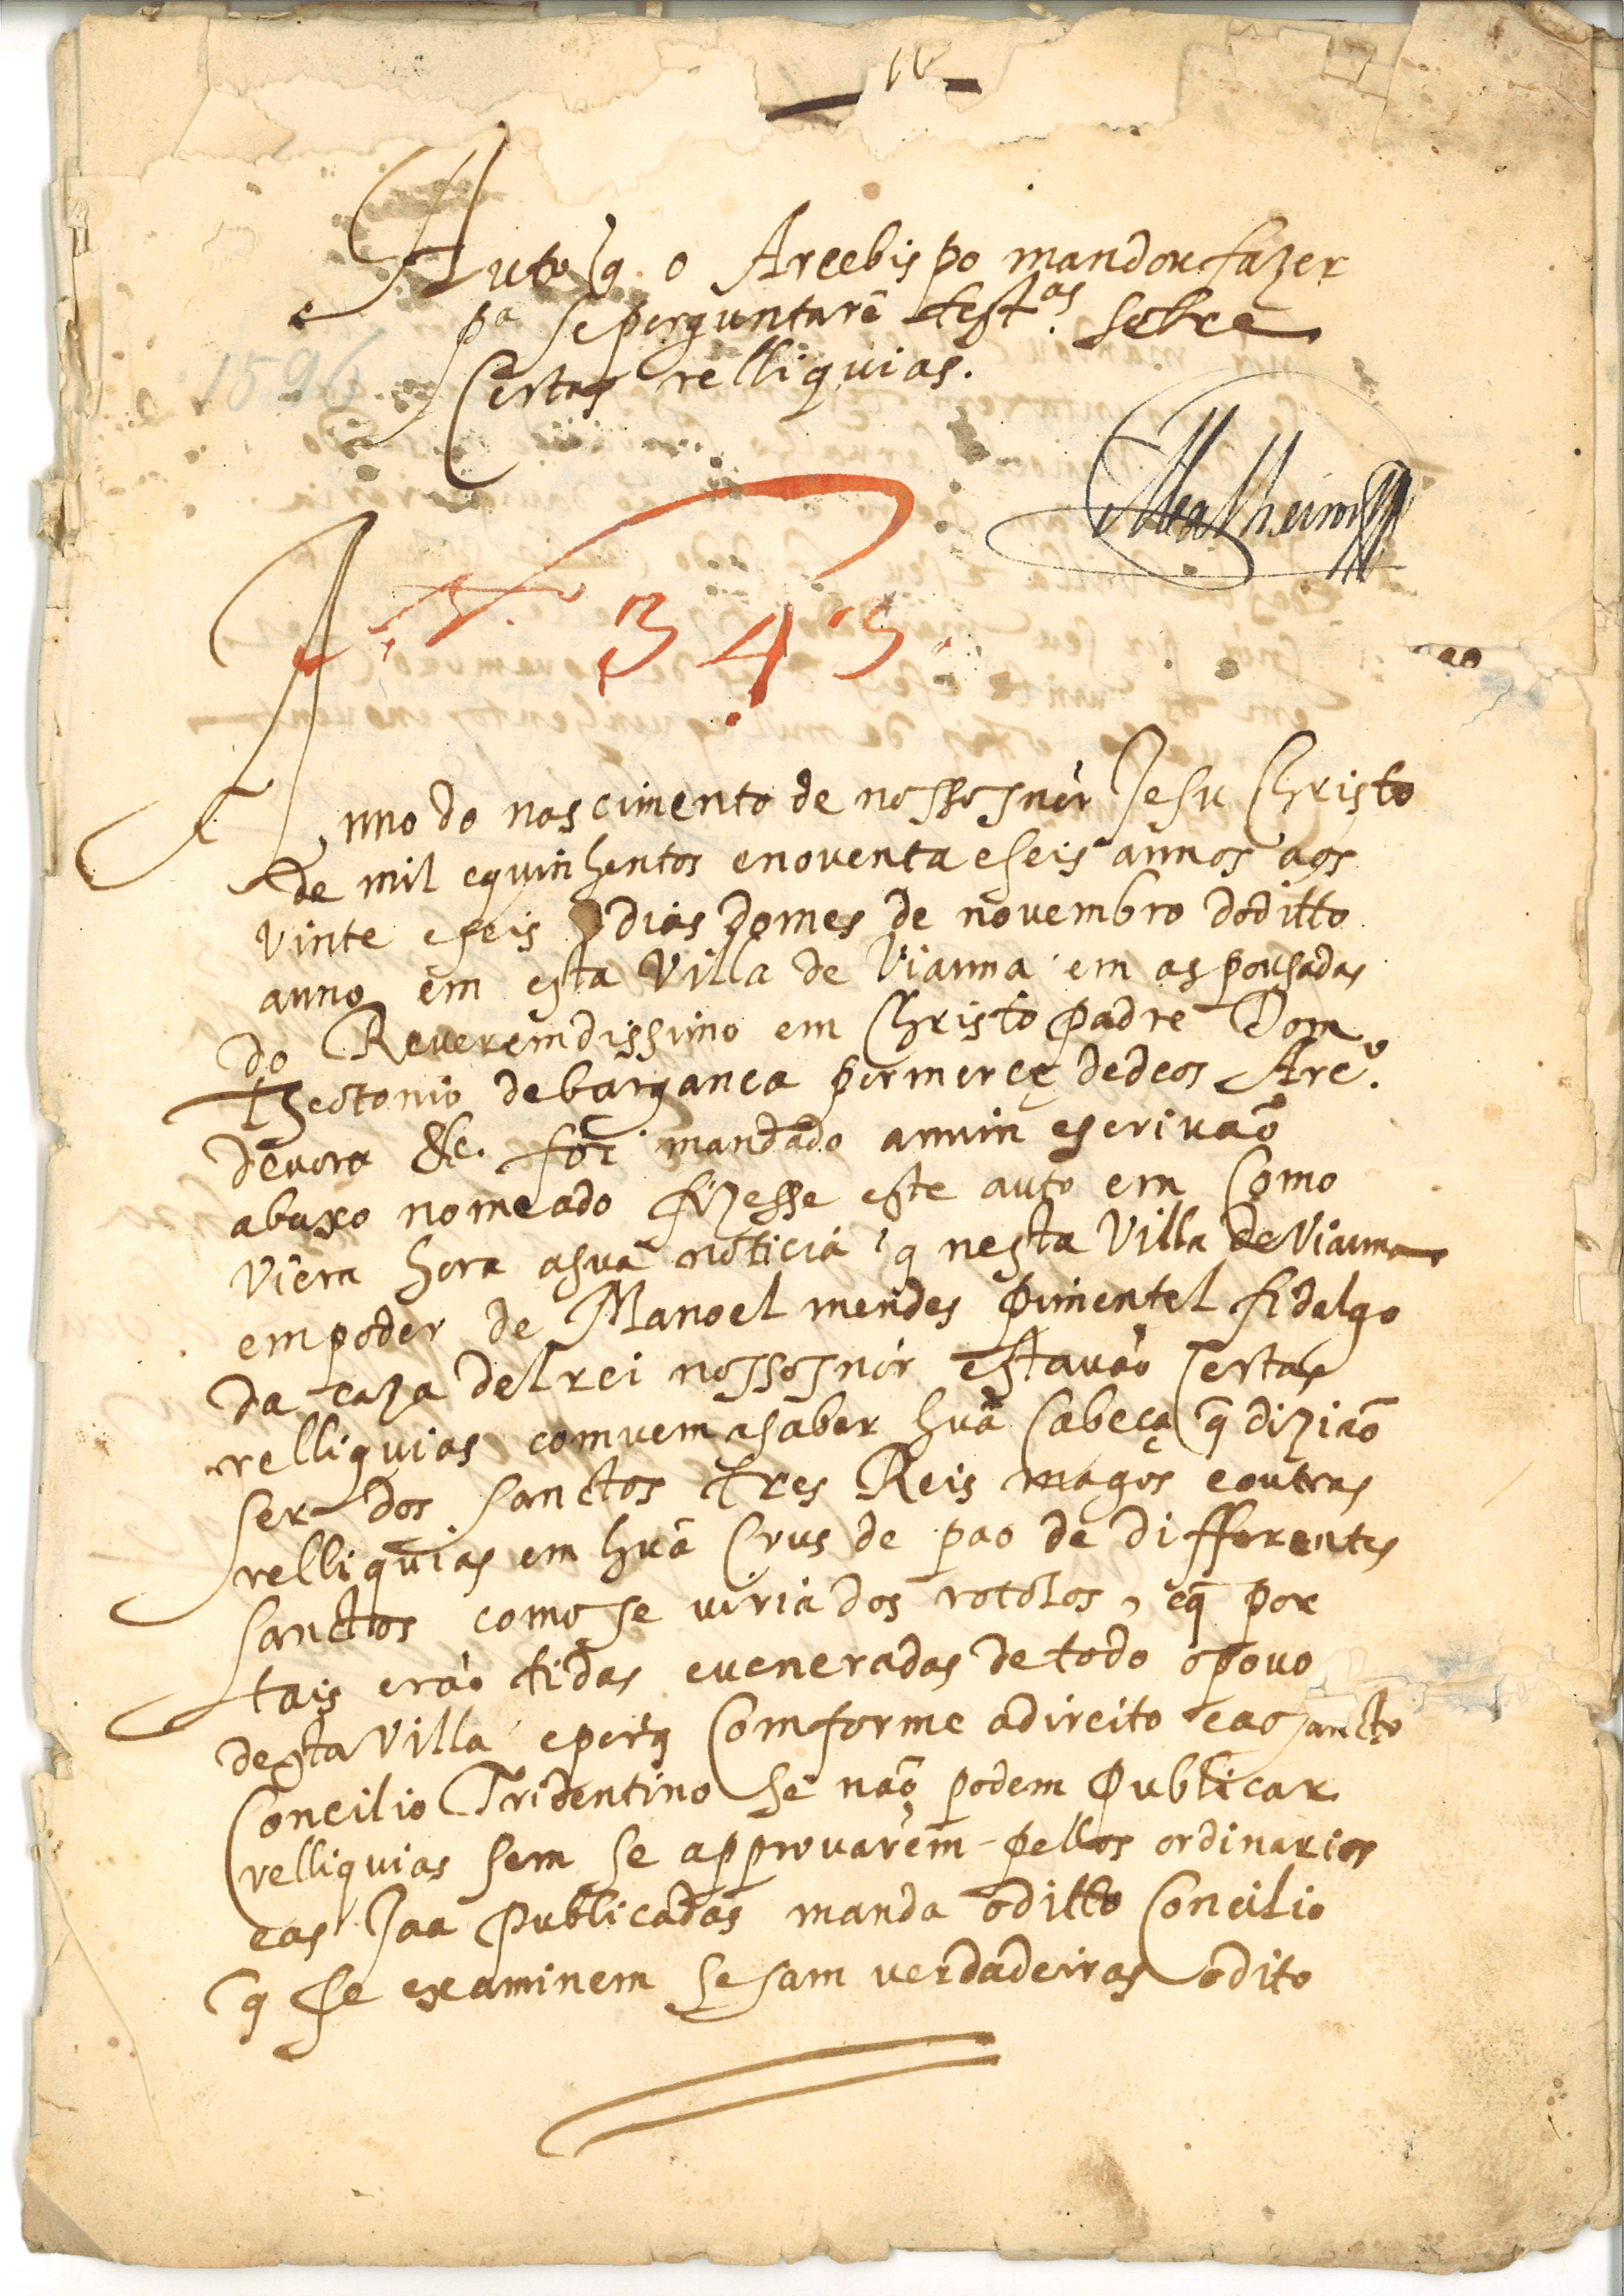 Auto q̃ o Arcebispo mandou fazer
pa se perguntarẽ testas. sobre
Certas relliquias.
1596
N. 343.
Anno do nascimento de nosso snõr Jesu Christo
de mil e quinhentos e noventa e seis annos aos
vinte e seis dias do mes de novembro do ditto
anno em esta Villa de Vianna em as pousadas
do Reverendissimo em Christo padre Dom
Theotonio de bargança per merçe de deos Arcº.
devora &c. foi mandado a mim escrivaõ
abaxo nomeado fizesse este auto em Como
viera hora a sua noticia q̃ nesta Villa de Vianna
em poder de Manoel mendes Pimentel fidalgo
da caza del rei nosso snõr estavaõ certas
relliquias comvem a saber huã Cabeça q̃ diziaõ
ser dos Sanctos tres Reis magos e outras
relliquias em huã Crus de pao de differentes
Sanctos como se viria dos rotolos, e q̃ por
tais eraõ tidas e veneradas de todo o povo
desta Villa e porq̃ Comforme a direito e ao sancto
Concilio Tridentino se naõ podem Publicar
relliquias sem se approvarem pellos ordinarios
e as Jaa Publicadas manda o ditto Concilio
q̃ se examinem se sam verdadeiras o dito